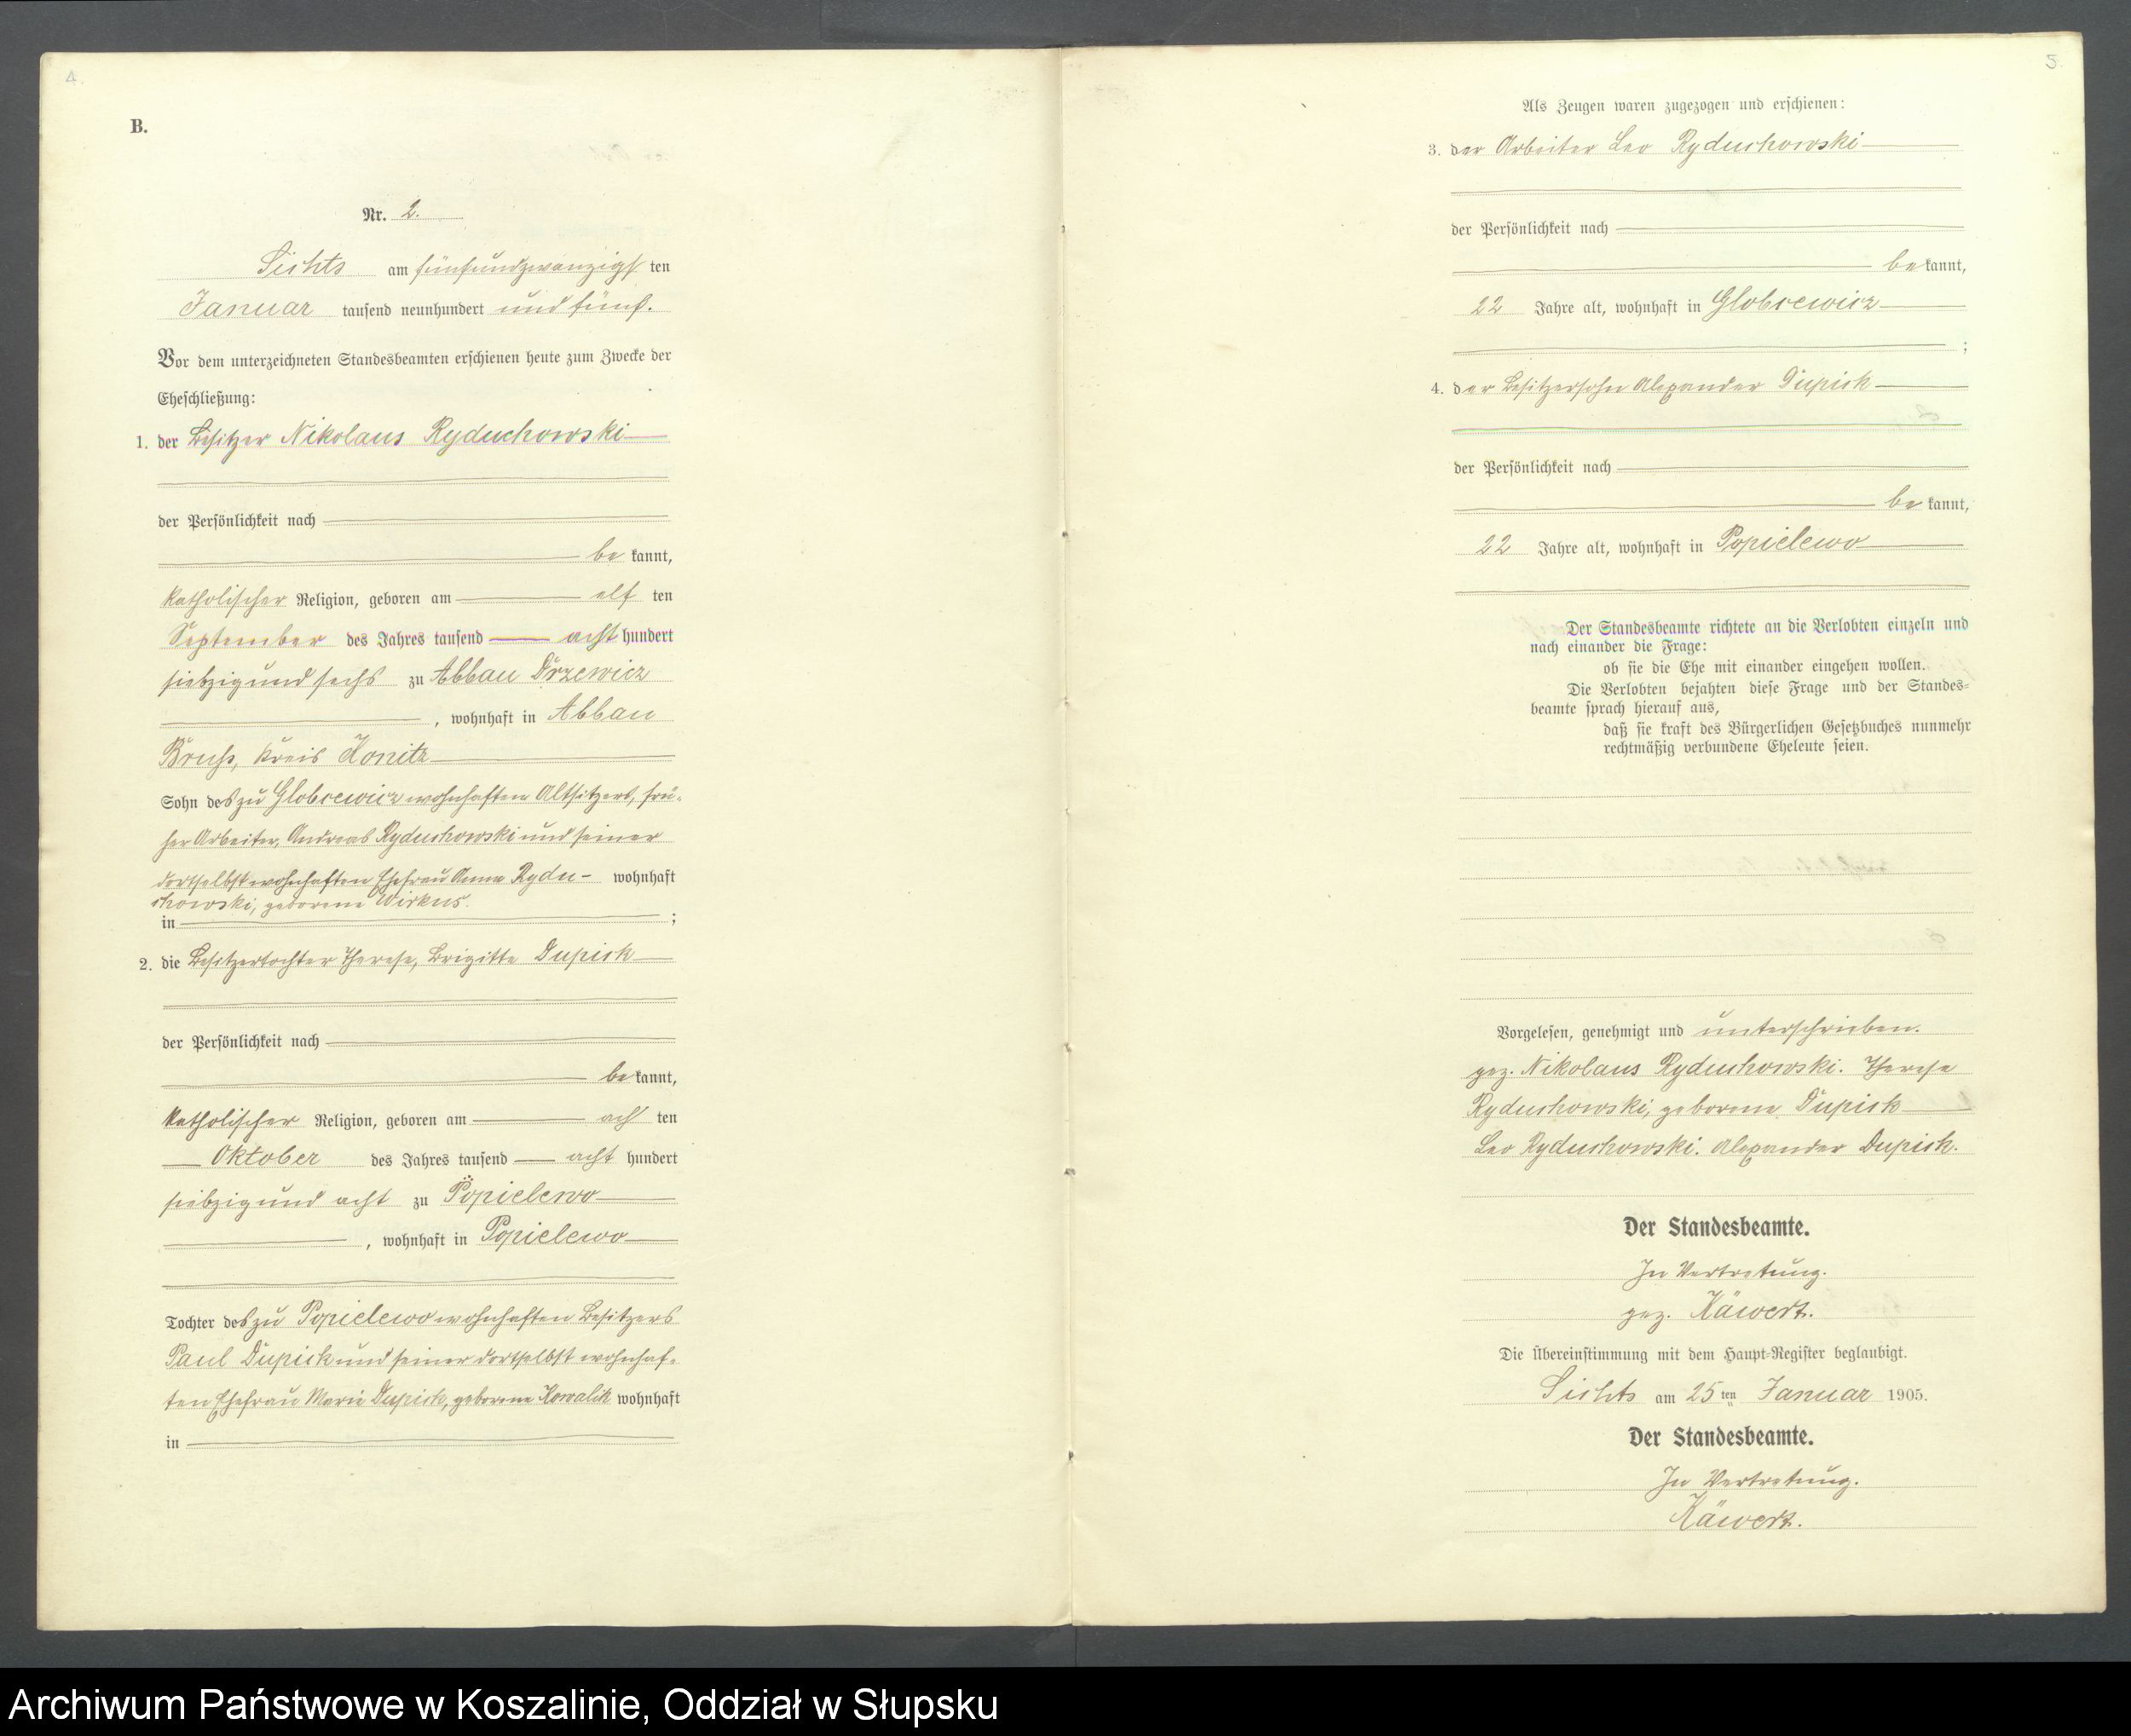 4.
B.
Nr. 2.
Sichts am fünfundzwanzigsten
Januar tausend neunhundert und fünf.
Vor dem unterzeichneten Standesbeamten erschienen heute zum Zwecke der
Eheschließung:
1. der Besitzer Nikolaus Ryduchowski
der Persönlichkeit nach
be kannt,
katholischer Religion, geboren am elf ten
September des Jahres tausend acht hundert
siebzig und sechs zu Abbau Drzewicz
, wohnhaft in Abbau
Bruß, Kreis Konitz
Sohn des zu Globcewicz wohnhaften Altsitzers, frü-
her Arbeiter, Andreas Ryduchowski und seiner
dortselbst wohnhaften Ehefrau Anna Rydu- wohnhaft
chowski, geborene Wirkus.
in ;
2. die Besitzertochter Therese, Brigitte Dupick
der Persönlichkeit nach
be kannt,
katholischer Religion, geboren am ach ten
Oktober des Jahres tausend acht hundert
siebzig und acht zu Popielewo
, wohnhaft in Popielewo
Tochter des zu Popielewo wohnhaften Besitzers
Paul Dupick und seiner dortselbst wohnhaf-
ten Ehefrau Marie Dupick, geborene Kowalik wohnhaft
in
5.
Als Zeugen waren zugezogen und erschienen:
3. der Arbeiter Leo Ryduchowski
der Persönlichkeit nach
be kannt,
22 Jahre alt, wohnhaft in Globcewicz
;
4. der Besitzersohn Alexander Dupick
der Persönlichkeit nach
be kannt,
22 Jahre alt, wohnhaft in Popielewo
Der Standesbeamte richtete an die Verlobten einzeln und
nach einander die Frage:
ob sie die Ehe mit einander eingehen wollen.
Die Verlobten bejahten diese Frage und der Standes-
beamte sprach hierauf aus,
daß sie kraft des Bürgerlichen Gesetzbuches nunmehr
rechtmäßig verbundene Eheleute seien.
Vorgelesen, genehmigt und unterschrieben.
gez. Nikolaus Ryduchowski. Therese
Ryduchowski, geborene Dupick
Leo Ryduchowski. Alexander Dupick.
Der Standesbeamte.
In Vertretung.
gez. Käwert.
Die Übereinstimmung mit dem Haupt-Register beglaubigt.
Sichts am 25 ten Januar 1905.
Der Standesbeamte.
In Vertretung.
Käwert.
Archiwum Państwowe w Koszalinie, Oddział w Słupsku